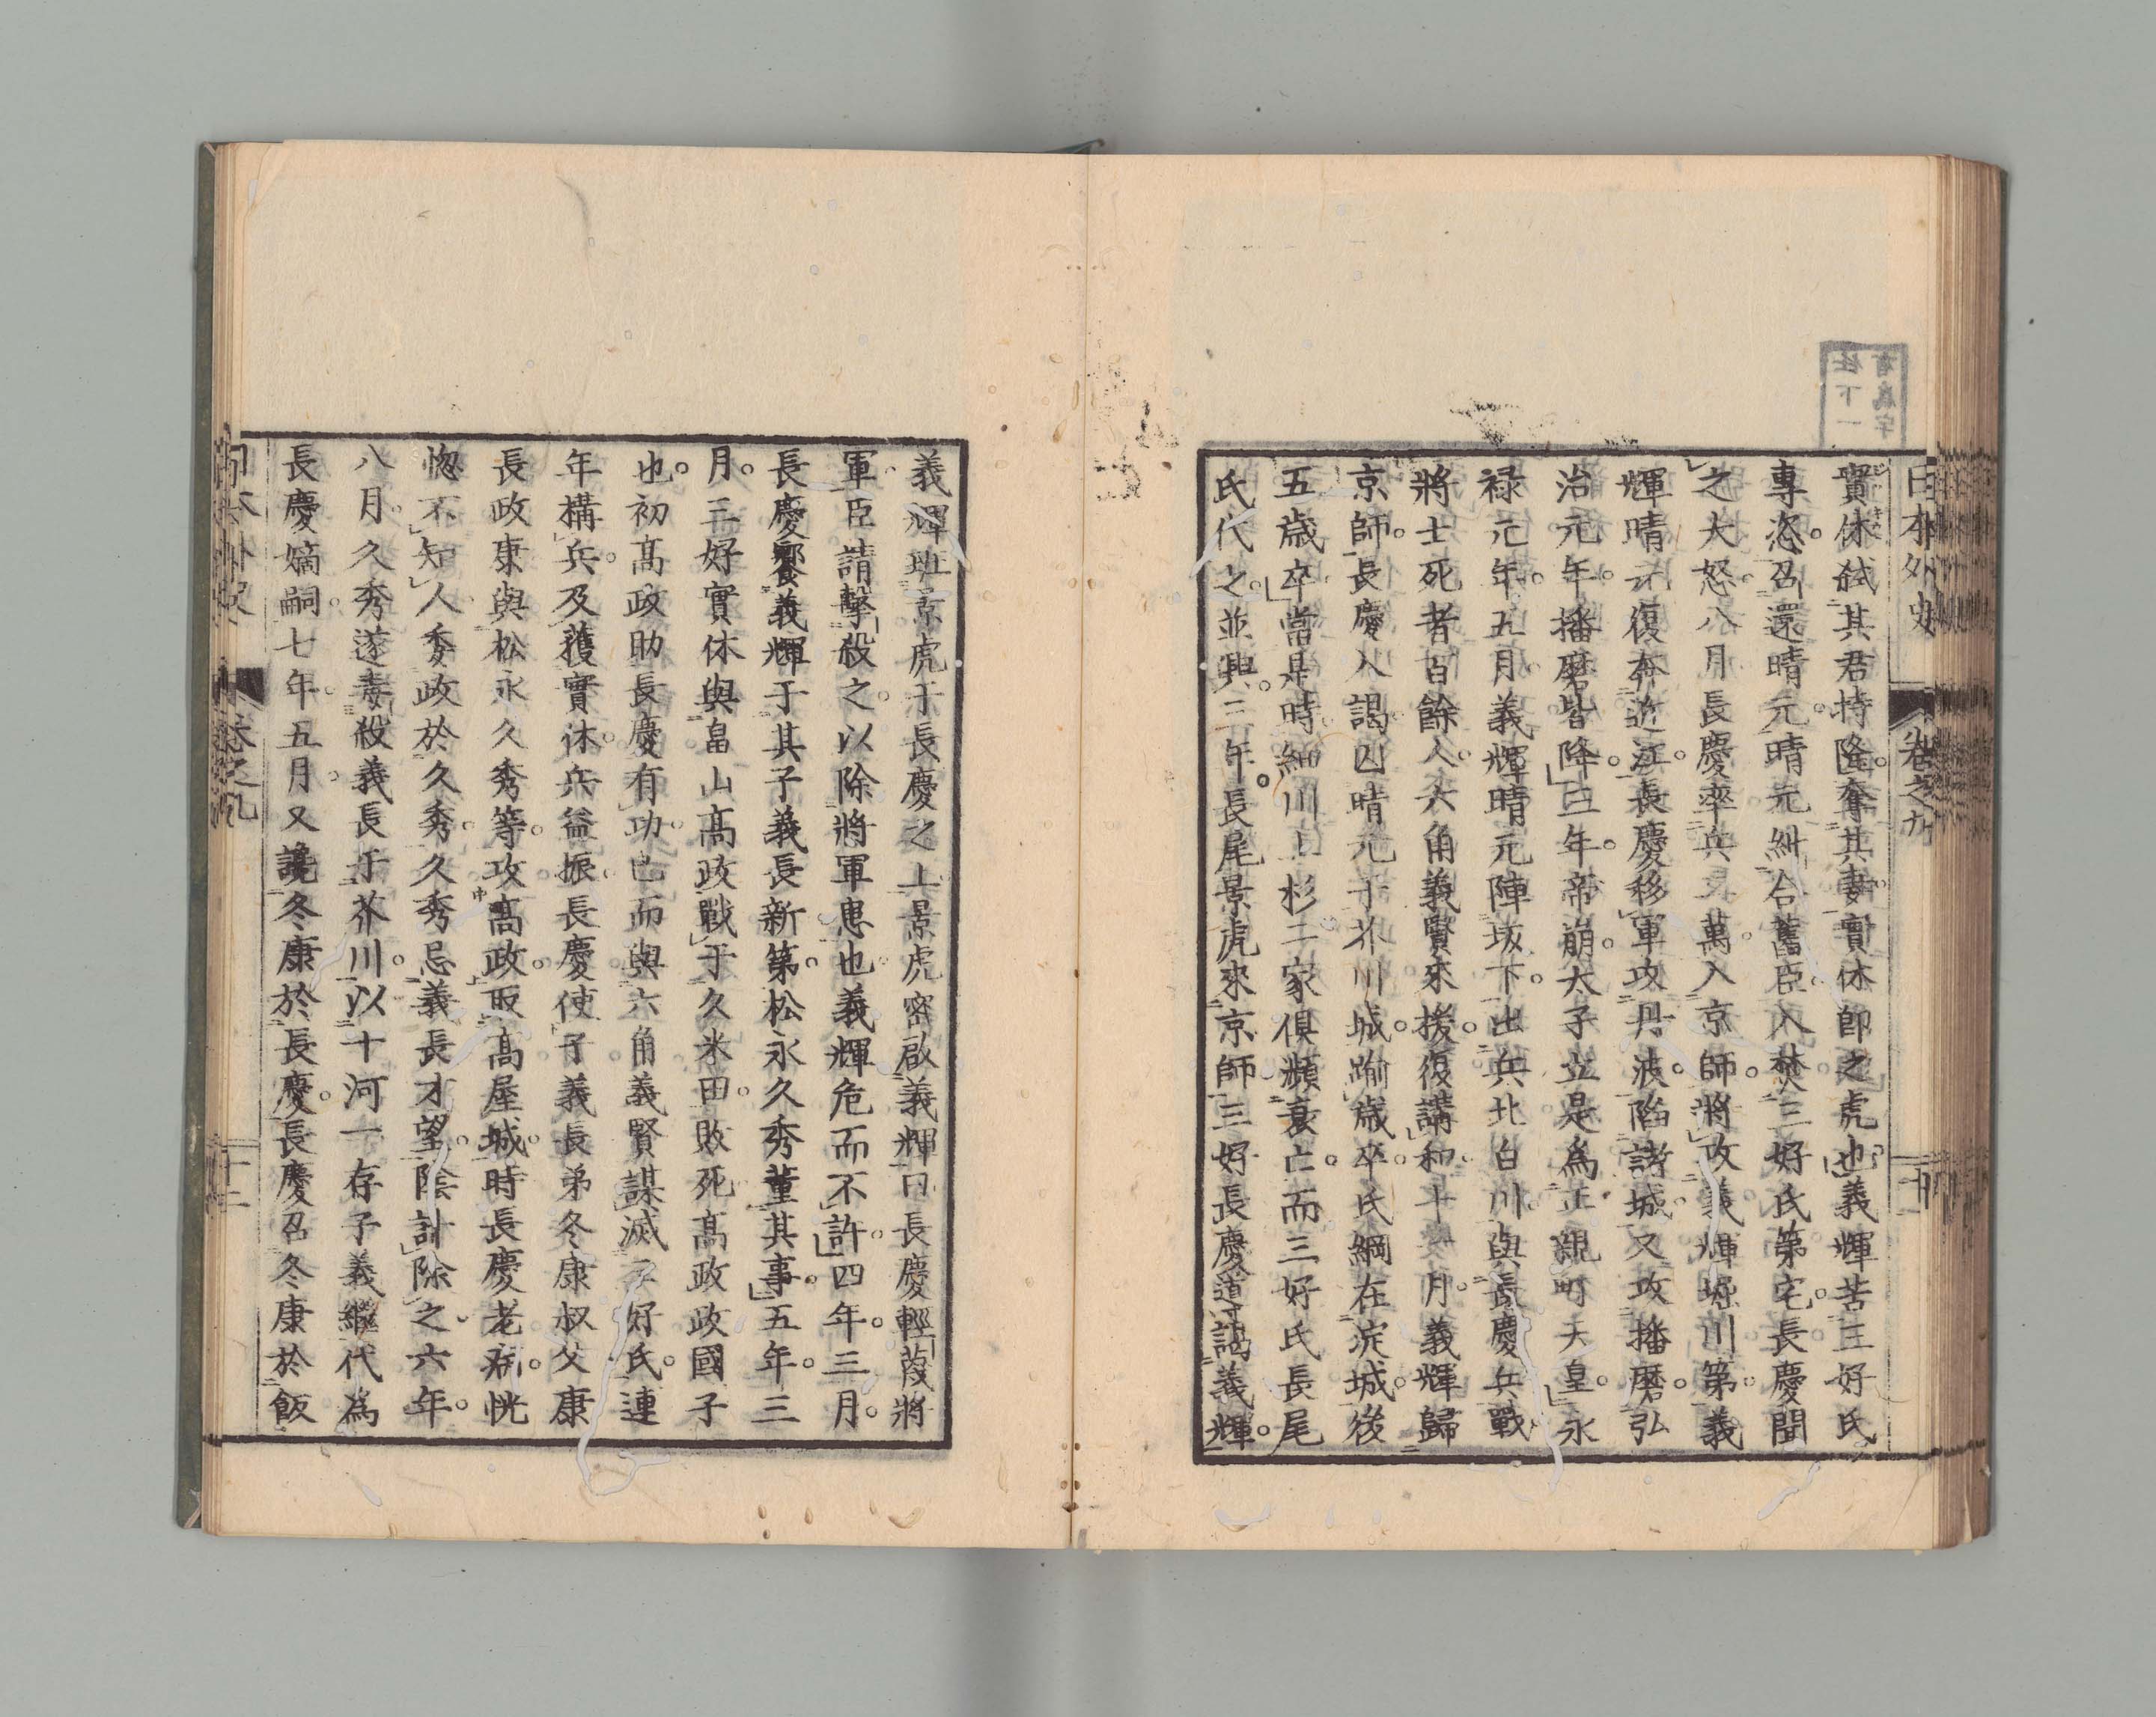 日本外史 卷之九
實休弑其君持隆奪其妻實休郎之虎也義輝苦三好氏
專恣召還晴元晴元糾合舊臣入焚三好氏第宅長慶聞
之大怒八月長慶率兵二萬入京師將攻義輝堀川第義
輝晴元復奔近江長慶移軍攻丹波陷諸城又攻播磨弘
治元年播磨皆降三年帝崩太子立是為正親町天皇永
祿元年五月義輝晴元陣坂下出兵北白川與長慶兵戰
將士死者百餘人六角義賢來援復講和十二月義輝歸
京師長慶入謁囚晴元于芥川城踰歲卒氏綱在淀城後
五歲卒當是時細川上杉二家俱瀕衰亡而三好氏長尾
氏代之並興二年長尾景虎來京師三好長慶導謁義輝
義輝班景虎于長慶之上景虎密啟義輝曰長慶輕蔑將
軍臣請擊殺之以除將軍患也義輝危而不許四年三月
長慶饗義輝于其子義長新第松永久秀董其事五年三
月三好實休與畠山高政戰于久米田敗死高政政國子
也初高政助長慶有功已而與六角義賢謀滅三好氏連
年構兵及獲實休兵益振長慶使子義長弟冬康叔父康
長政康與松永久秀等攻高政取高屋城時長慶老病恍
惚不知人委政於久秀久秀忌義長才望陰計除之六年
八月久秀遂毒殺義長于芥川以十河一存子義繼代為
長慶嫡嗣七年五月又讒冬康於長慶長慶召冬康於飯
日本外史 卷之九 十二